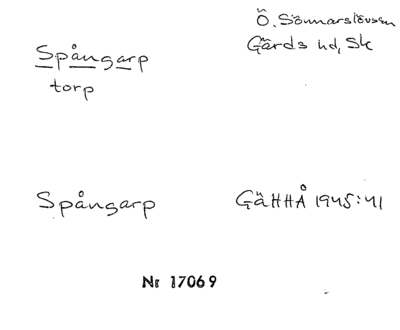 Ö. Sönnarslövssn
Gärds hd, Sk
Spångarp
torp
Spångarp GäHHÅ 1945:41
Nr 17069